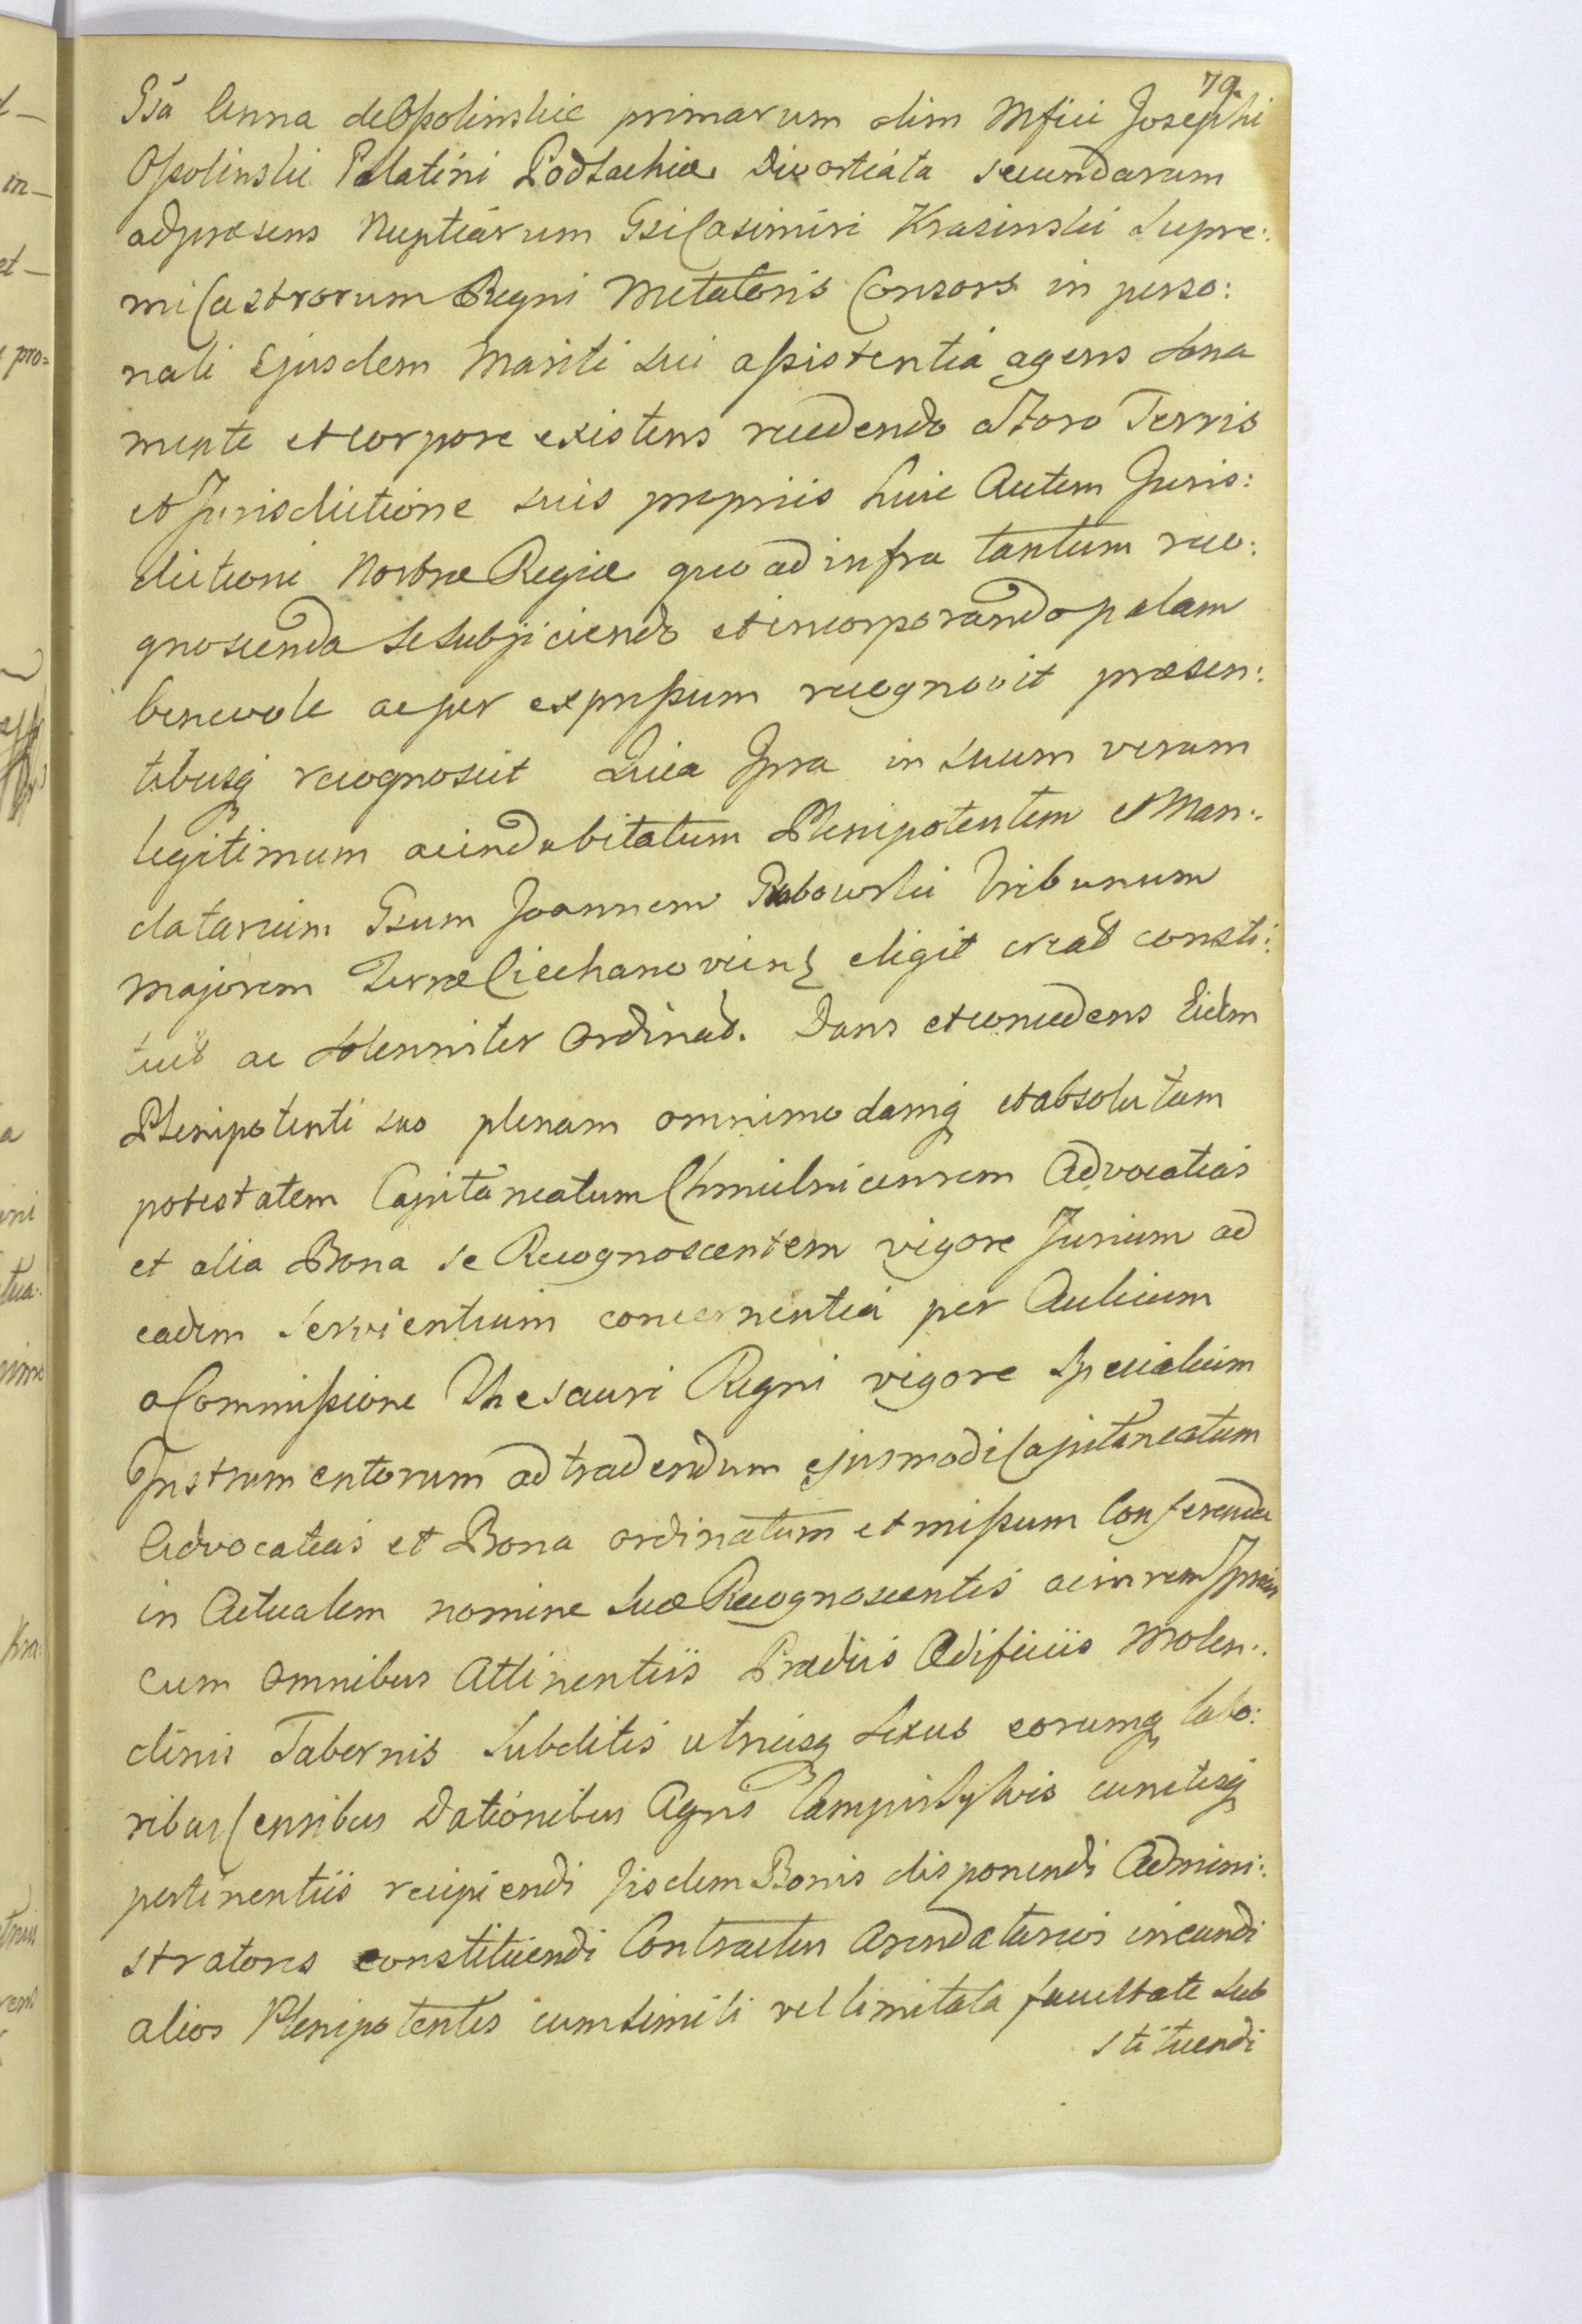 79.
Gsa Anna de Ossolinskie primarum olim Mfici Josephi
Ossolinski Palatini Podlachiæ Divortiata secundarum
adpræsens Nuptiarum Gsi Casimiri Krasinski Supre:
mi Castrorum Regni Metatoris Consors in perso:
nali Ejusdem Mariti sui assistentia agens sana
mente et corpore existens recedendo a Foro Terris
et Jurisdictione suis propriis huic Autem Juris:
dictioni Nostræ Regiæ quo ad infra tantum reco:
gnoscenda se subjiciendo et incorporando palam
benevole ac per expressum recognovit præsen:
tibusq recognoscit Quia Ipsa in suum verum
legitimum ac indubitatum Plenipotentem et Man:
datarium Gsum Joannem Grabowski Tribunum
majorem Terræ Ciechanoviens eligit creat consti:
tuit ac solenniter ordinat. Dans et concedens Eidem
Plenipotenti suo plenam omnimodamq et absolutam
potestatem Capitaneatum Chmielnicensem Advocatias
et alia Bona se Recognoscentem vigore Jurium ad
eadem servientium concernentia per Aulicum
a Commissione Thesauri Regni vigore specialium
Instrumentorum ad tradendum ejusmodi Capitaneatum
Advocatias et Bona ordinatum et missum Conferenda
in Actualem nomine suæ Recognoscentis ac in rem Ipsius
cum omnibus Attinentiis Prædiis Ædificiis Molen:
dinis Tabernis Subditis utriusq sexus eorumq labo:
ribus Censibus Dationibus Agris Campis Sylvis cunctisq
pertinentiis recipiendi Iisdem Bonis disponendi Admini:
stratores constituendi Contractus Arendatarios ineundi
alios Plenipotentes cum simili vel limitata facultate sub
stituendi